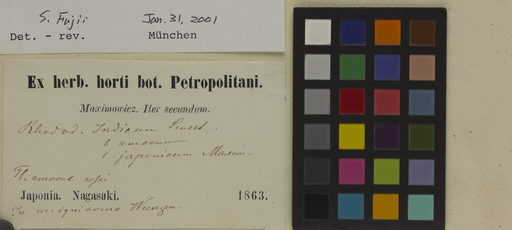 S. Fujii Jan. 31, 2001
Det. - rev. München
Ex herb. horti bot. Petropolitani.
Maximowicz. Iter secundum.
Rhodod. Indicum Sweet.
b amoenum
i japonicum Maxim.
Fl.
Japonia. Nagasaki. 1863.
In m. ignivomo Wunzen